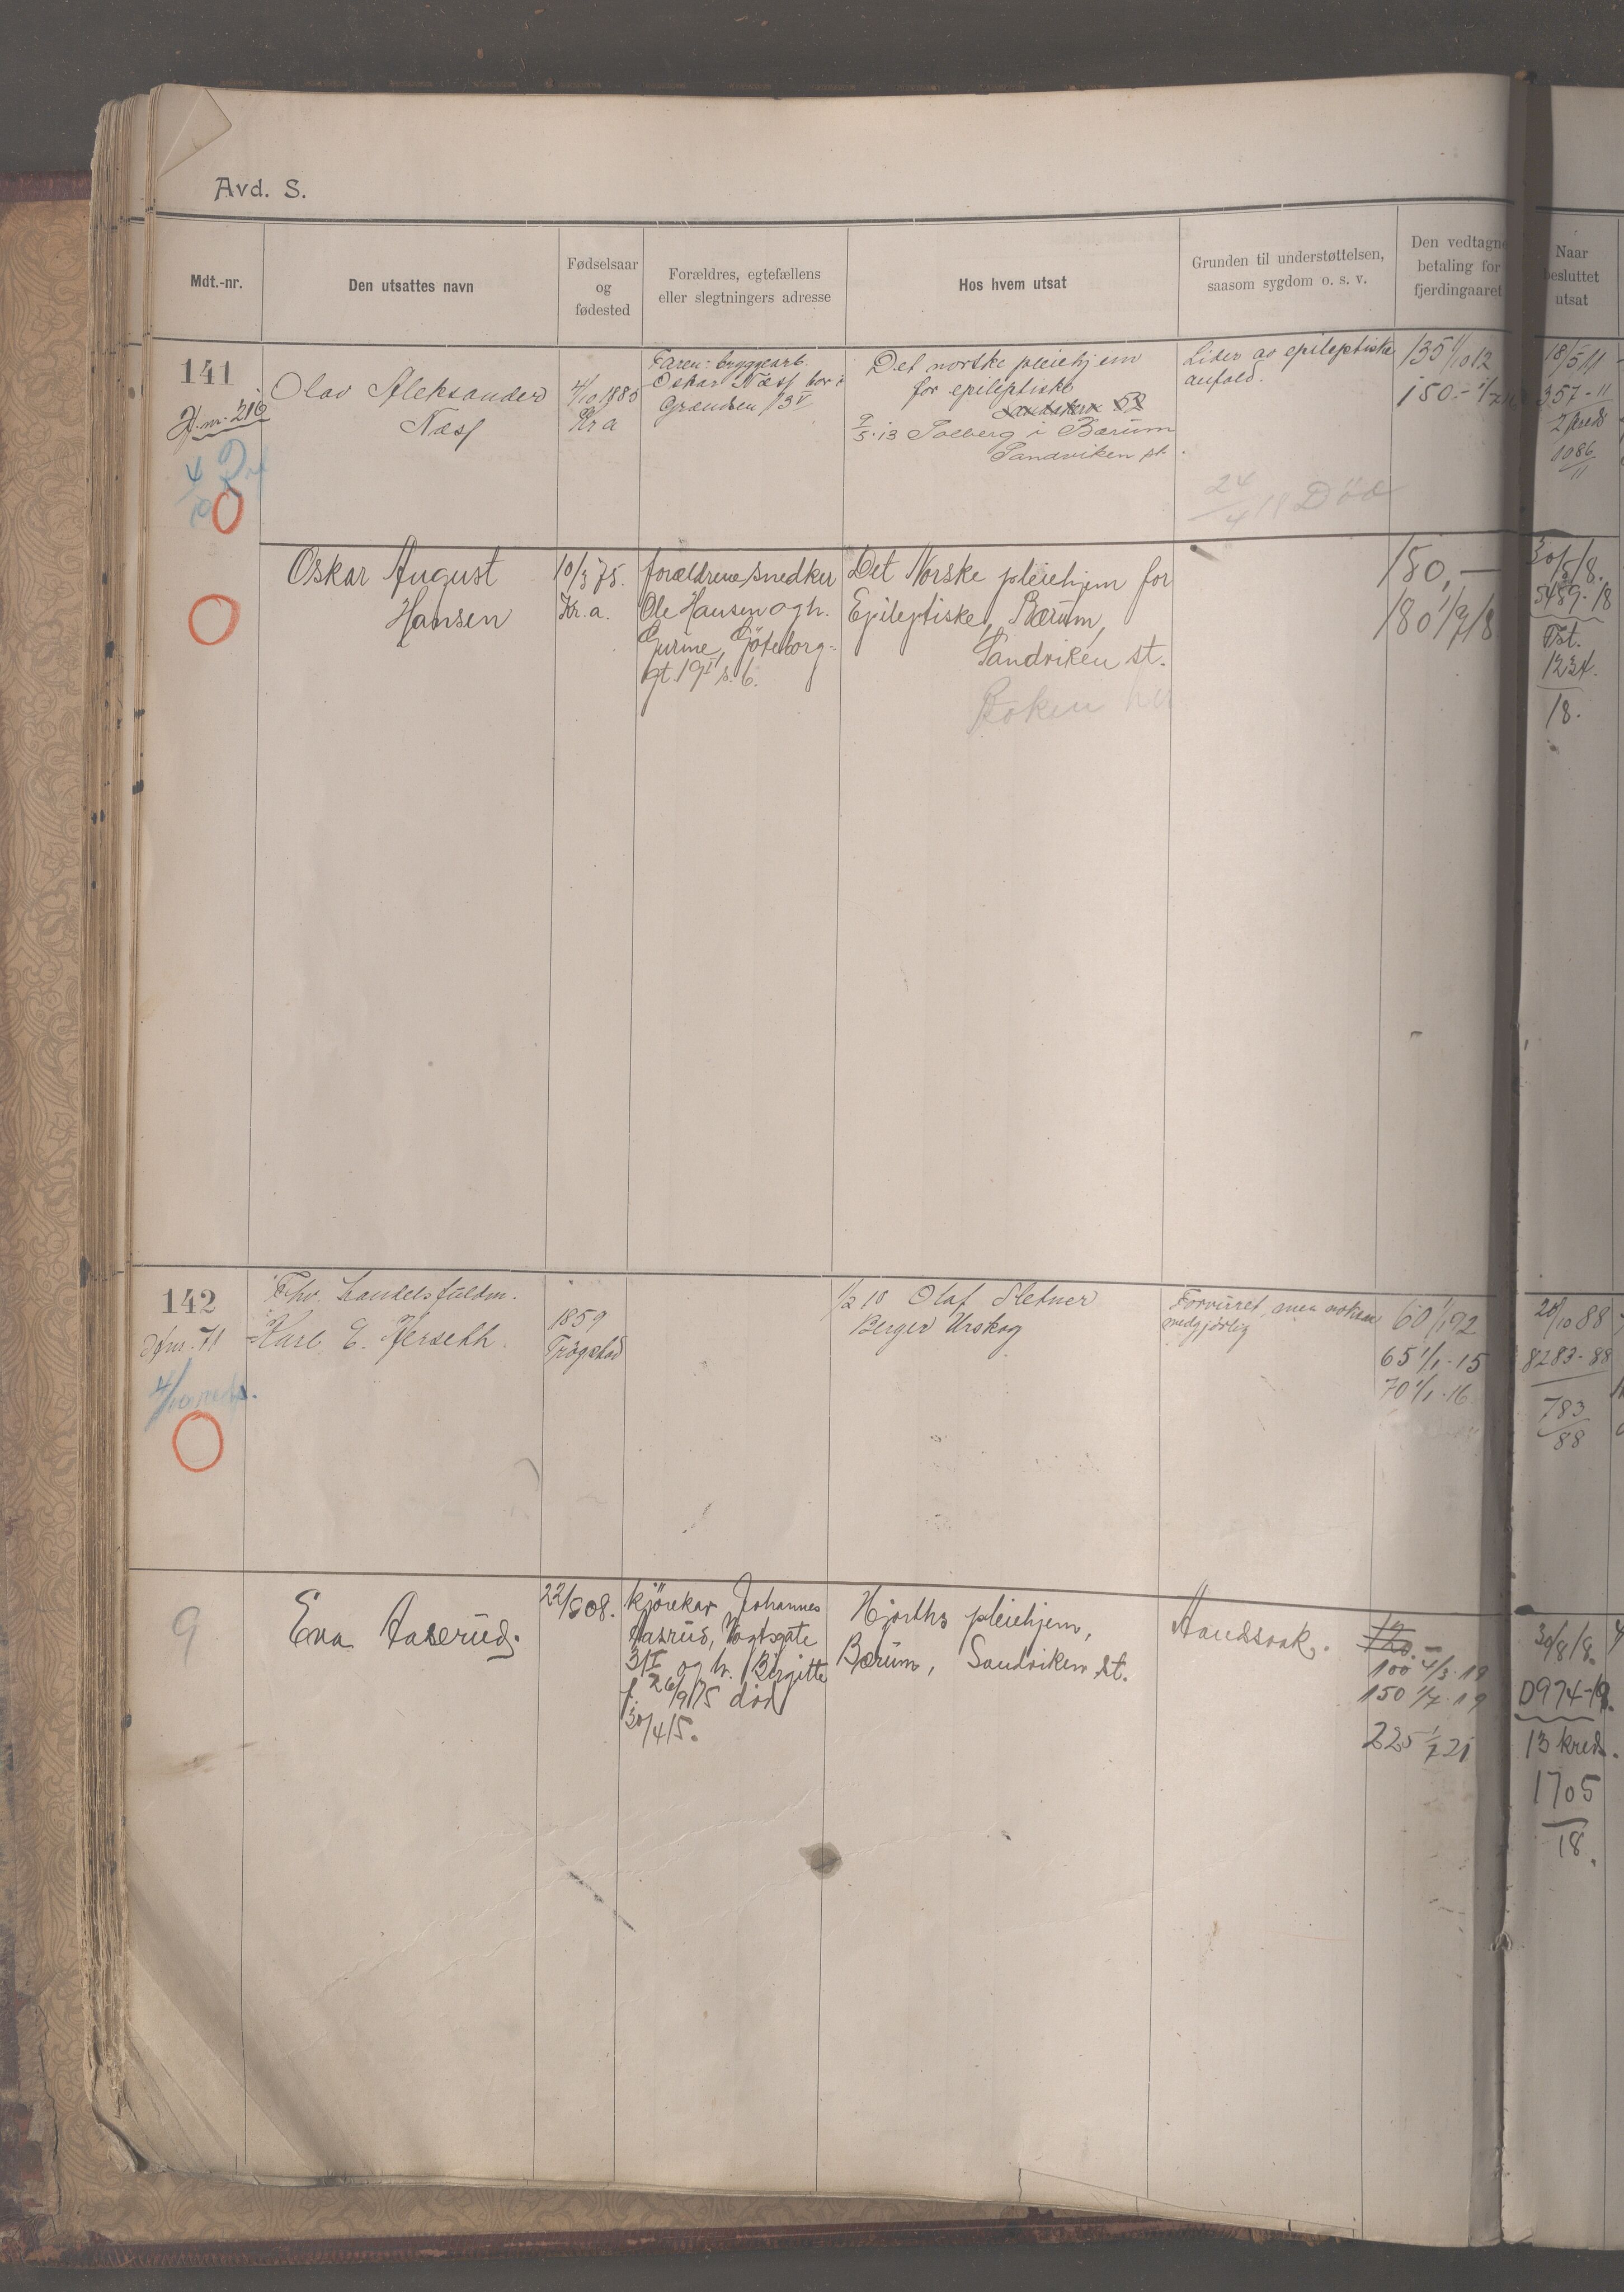 Avd. S.
Mdt.-nr.
Den utsattes navn
Fødselsaar
og
fødested
Forældres, egtefællens
eller slegtningers adresse
Hos hvem utsat
Grunden til understøttelsen,
saasom sygdom o. s. v.
Den vedtagne
betaling for
fjerdingaaret
Naar
besluttet
utsat
141
Olav Aleksander
Næss
4/10 1885
Kr a
Faren: bryggearb
Oskar Næss bor i
Grændsen 13 V
Det norske pleiehjem
for epileptiske
9/5.13 Solberg i Bærum
Sandviken st.
Lider av epileptiske
anfald.
24/4 18 Död
135 1/10 12
150.- 1/7
18/5 11
357-11
2 kreds
1086
11
Oskar August
Hansen
10/3 75.
Kr.a.
forældrene snedker
Ole Hansen og h.
Gurine, Göteborg-
gt. 19 II s. b.
Det Norske pleiehjem for
Epileptiske, Bærum,
Sandviken st.
Boken
150,—
180 1/7 18
30/5 18.
5489-18
Tst.
1234.
18.
142
Fhv. handelsfuldm.
Karl E. Herseth.
1859
Trögstad
1/2 10 Olaf Sletner
Berger Urskog
Forvirret, men noksaa
medgjörlig
60 1/1 92
65 1/1 - 15
70 1/1 - 16
20/10 88
8283-88
783
88
9
Eva Aaserud.
22/8 08.
kjörekar Johannes
Aasrud, Vogtsgate
31 I og h. Birgitte
f. 26/9 75 död
30/4 15.
Hjorths pleiehjem,
Bærum, Sandviken st.
Aandssvak.
100 4/3 - 19
150 1/7 - 19
225 1/7 21
30/8 18.
0974-18.
13 kreds.
1705
18.